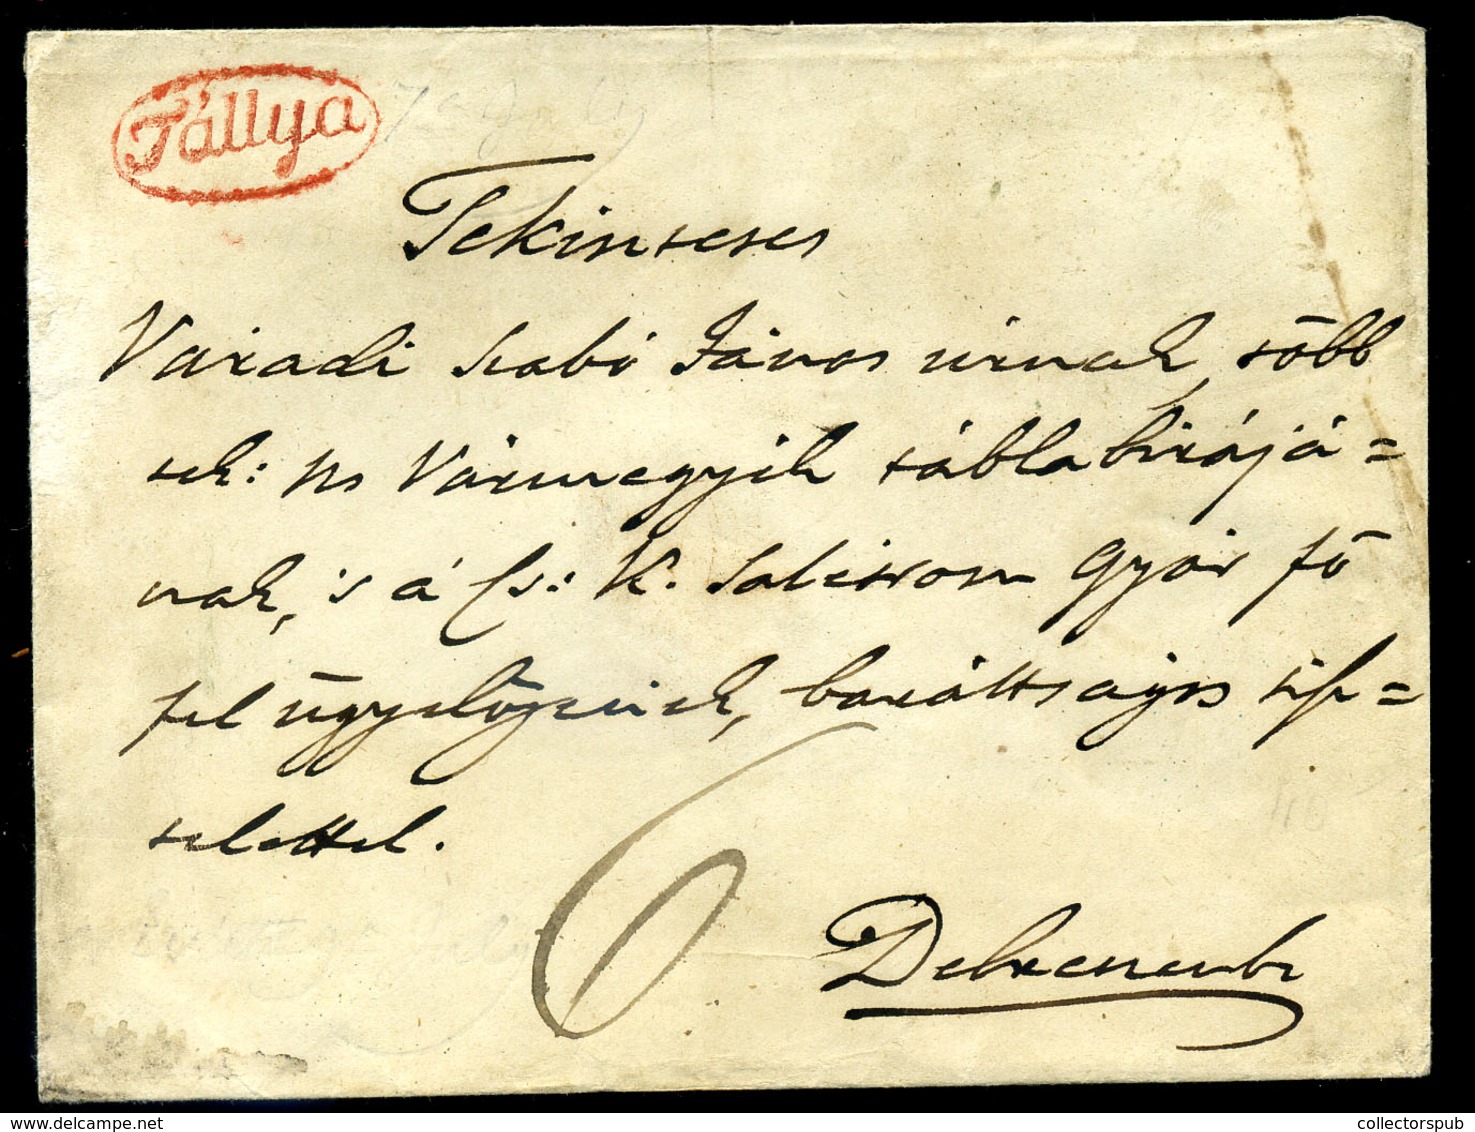 Tállya
Tekintetes
Váradi Szabó János úrnak, több
tek: Ns Vármegyék táblabirájá=
nak, 's a Cs: K. Salitrom Gyár fő
fel ügyelőjének, baráttságos tisz=
telettel.
6
Debreczenbe
collectorspub